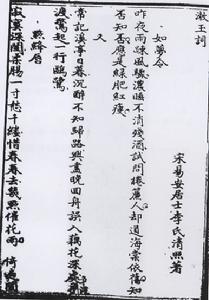 漱玉詞
宋易安居士李氏清照著
如夢令
昨夜雨疎風驟濃睡不消殘酒試問捲簾人却道海棠依舊知
否知否應是綠肥紅瘦
又
常記溪亭日暮沉醉不知歸路興盡晚回舟誤入藕花深處
渡驚起一行鷗鷺
點絳唇
寂寞深閨柔腸一寸愁千縷惜春春去幾點催花雨 倚遍闌